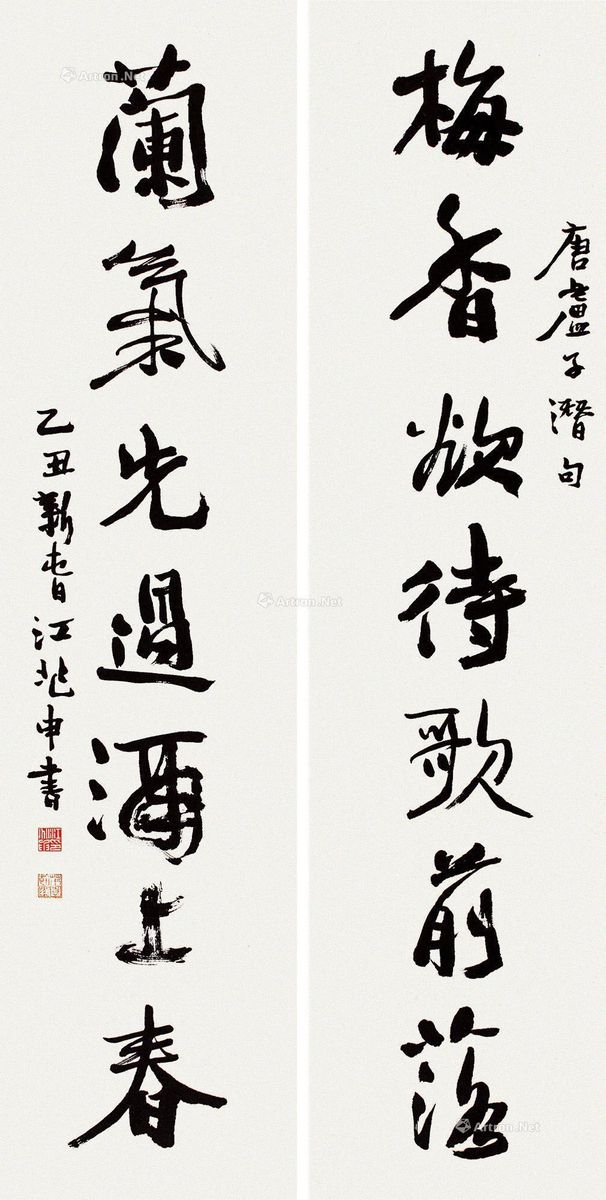 唐盧子潛句
梅香欲待歌前落
蘭氣先過酒上春
乙丑新春江兆申書
Artron.Net
Artron.Net
Artron.Net